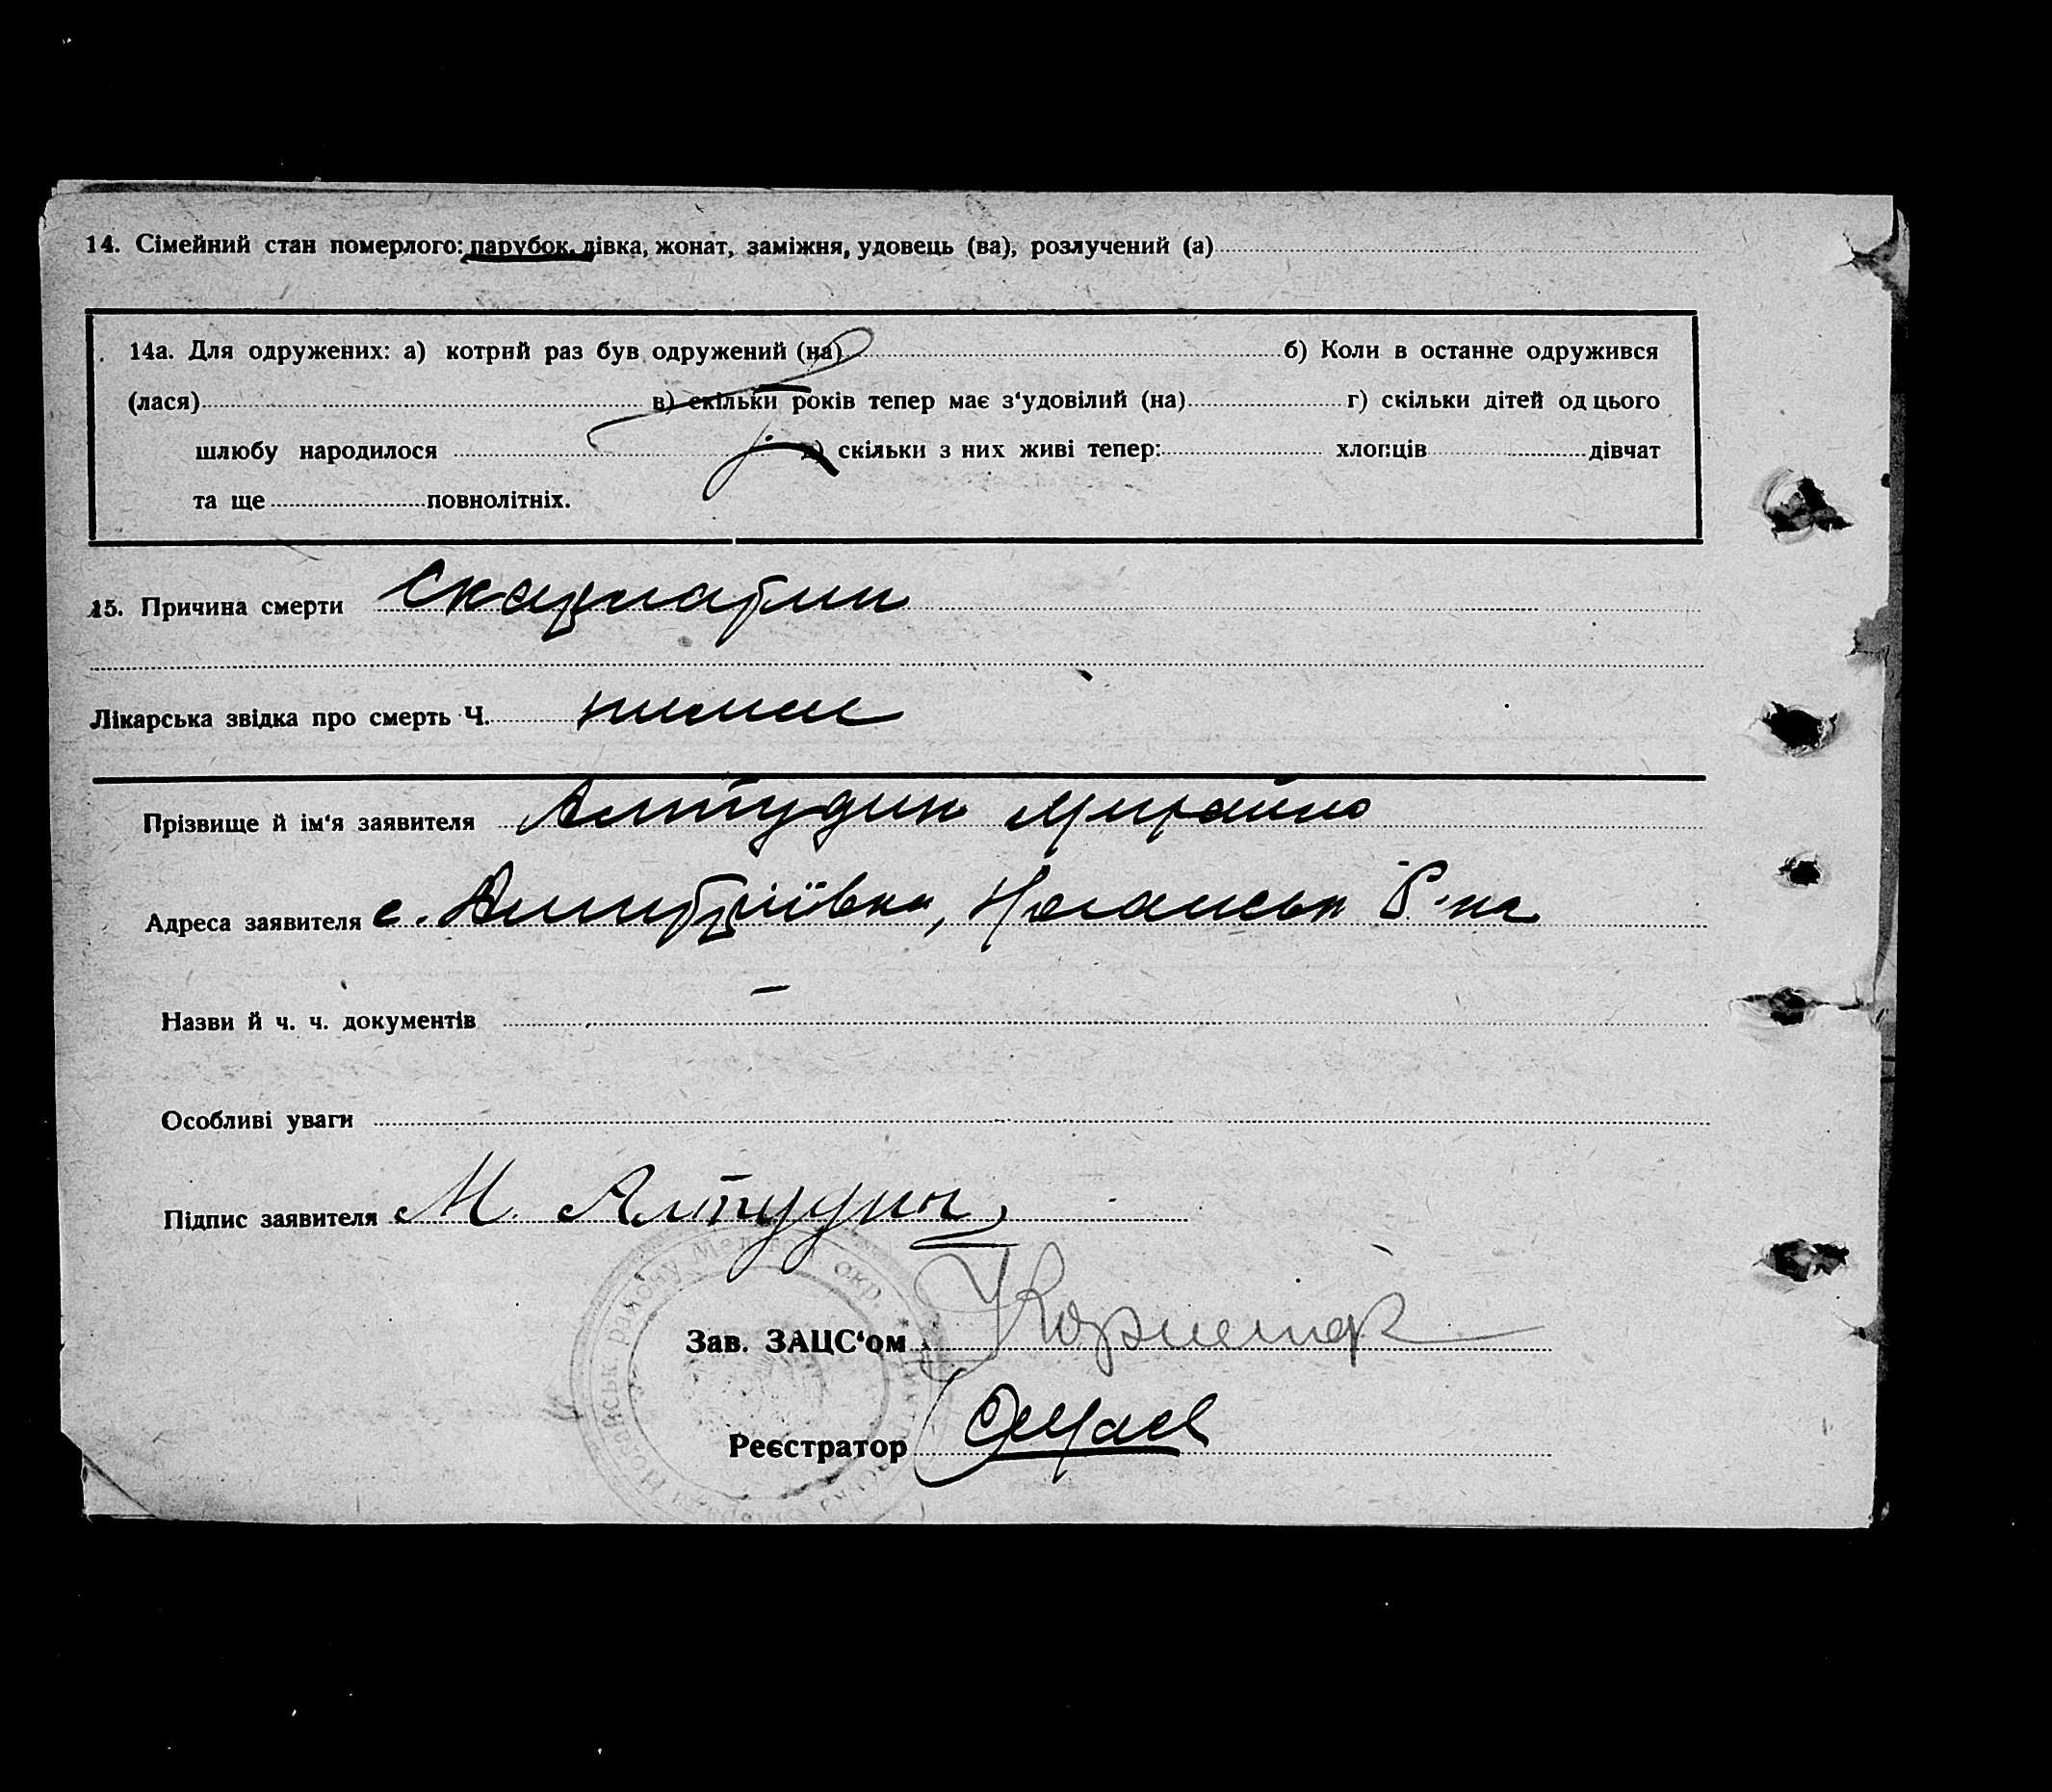 14. Сімейний стан померлого: парубок, дівка, жонат, заміжня, удовець (ва), розлучений (а)
14а. Для одружених: а) котрий раз був одружений (на) б) Коли в останнє одружився
(лася) в) скільки років тепер має з‘удовілий (на) г) скільки дітей од цього
шлюбу народилося д) скільки з них живі тепер: хлопців дівчат
та ще повнолітніх.
15. Причина смерти Скарлатин
Лікарська звідка про смерть Ч. немає
Прізвище й ім‘я заявителя Алтудин Михайло
Адреса заявителя с. Дмитріївка, Ногайськ Р-на
Назви й ч. ч. документів —
Особливі уваги
Підпис заявителя М. Алтудин
Зав. ЗАЦС‘ом
Реєстратор